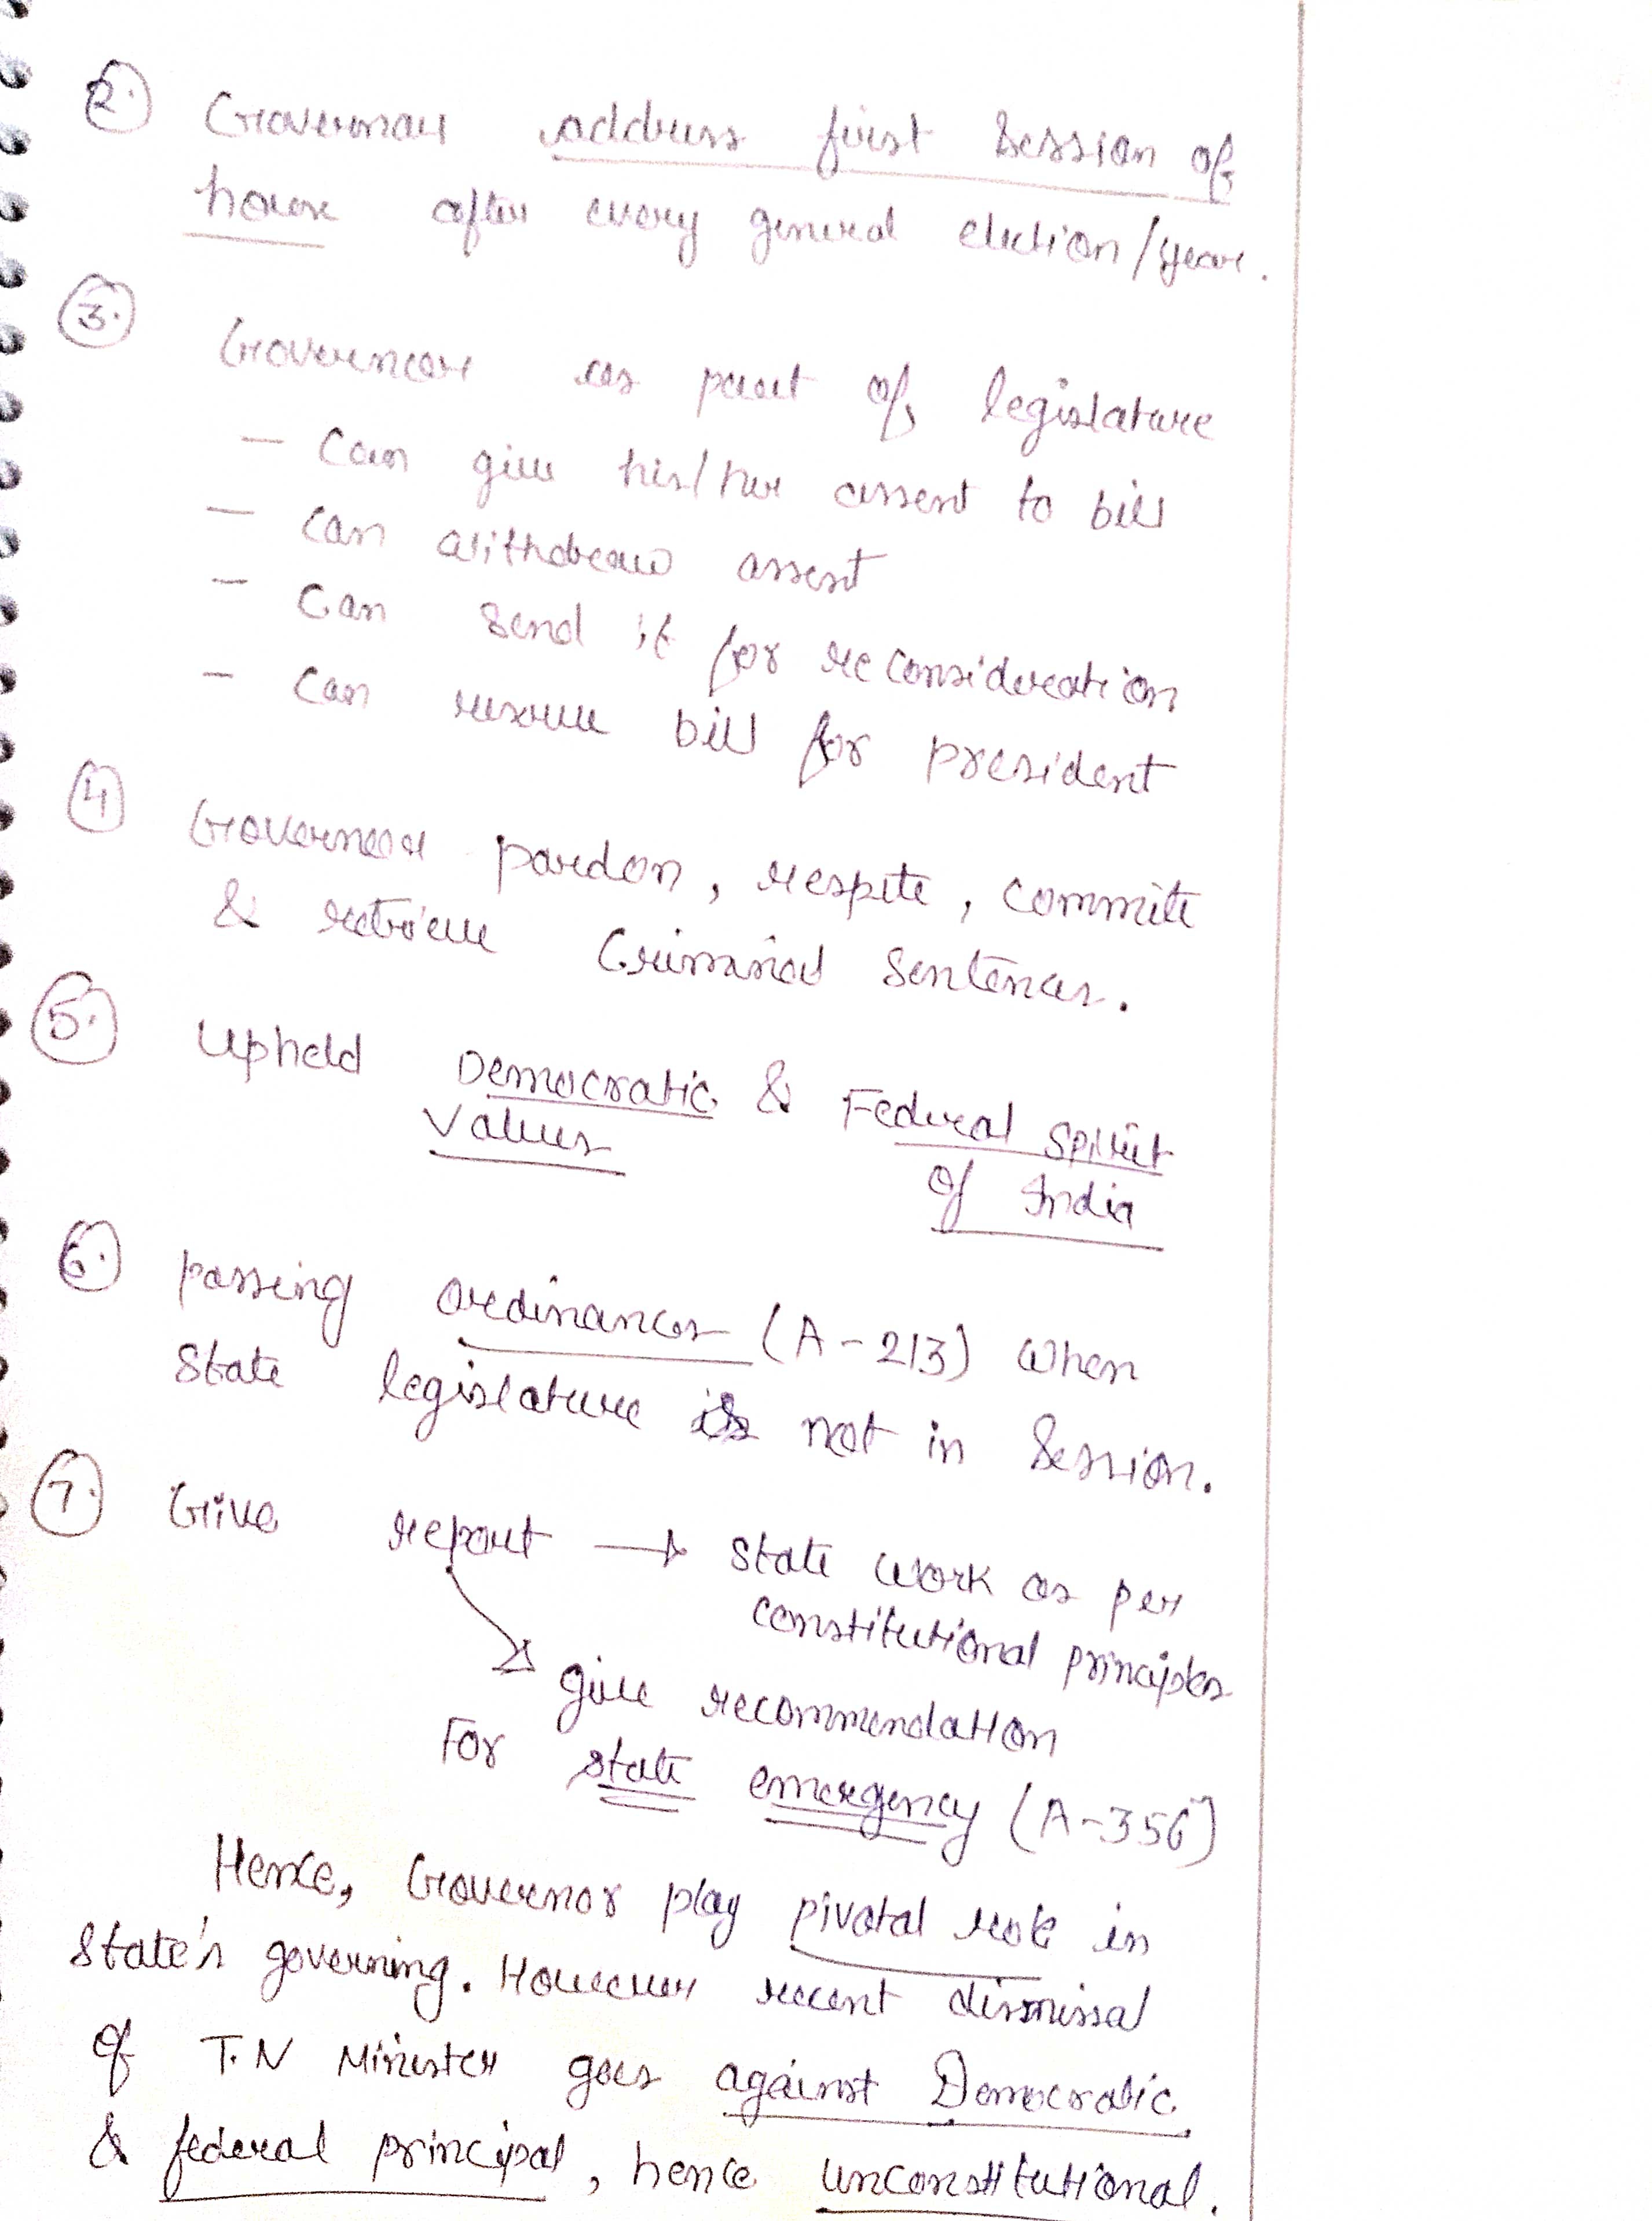 2. Governor address first session of
house after every general election/year.
3. Governor as part of legislature
- Can give his/her assent to bill
- Can withdraw assent
- Can send it for reconsideration
- Can reserve bill for president
4 Governor pardon, respite, commute
& retrieve Criminal Sentences.
5. Uphold Democratic & Federal spirit
Values of India
6. Passing ordinances (A-213) when
State legislature is not in Session.
7. Give report → State work as per
constitutional principles
give recommendation
For state emergency (A-356)
Hence, Governor play pivotal role in
State's governing. However recent dismissal
of T.N Minister goes against Democratic
& federal principal, hence unconstitutional.